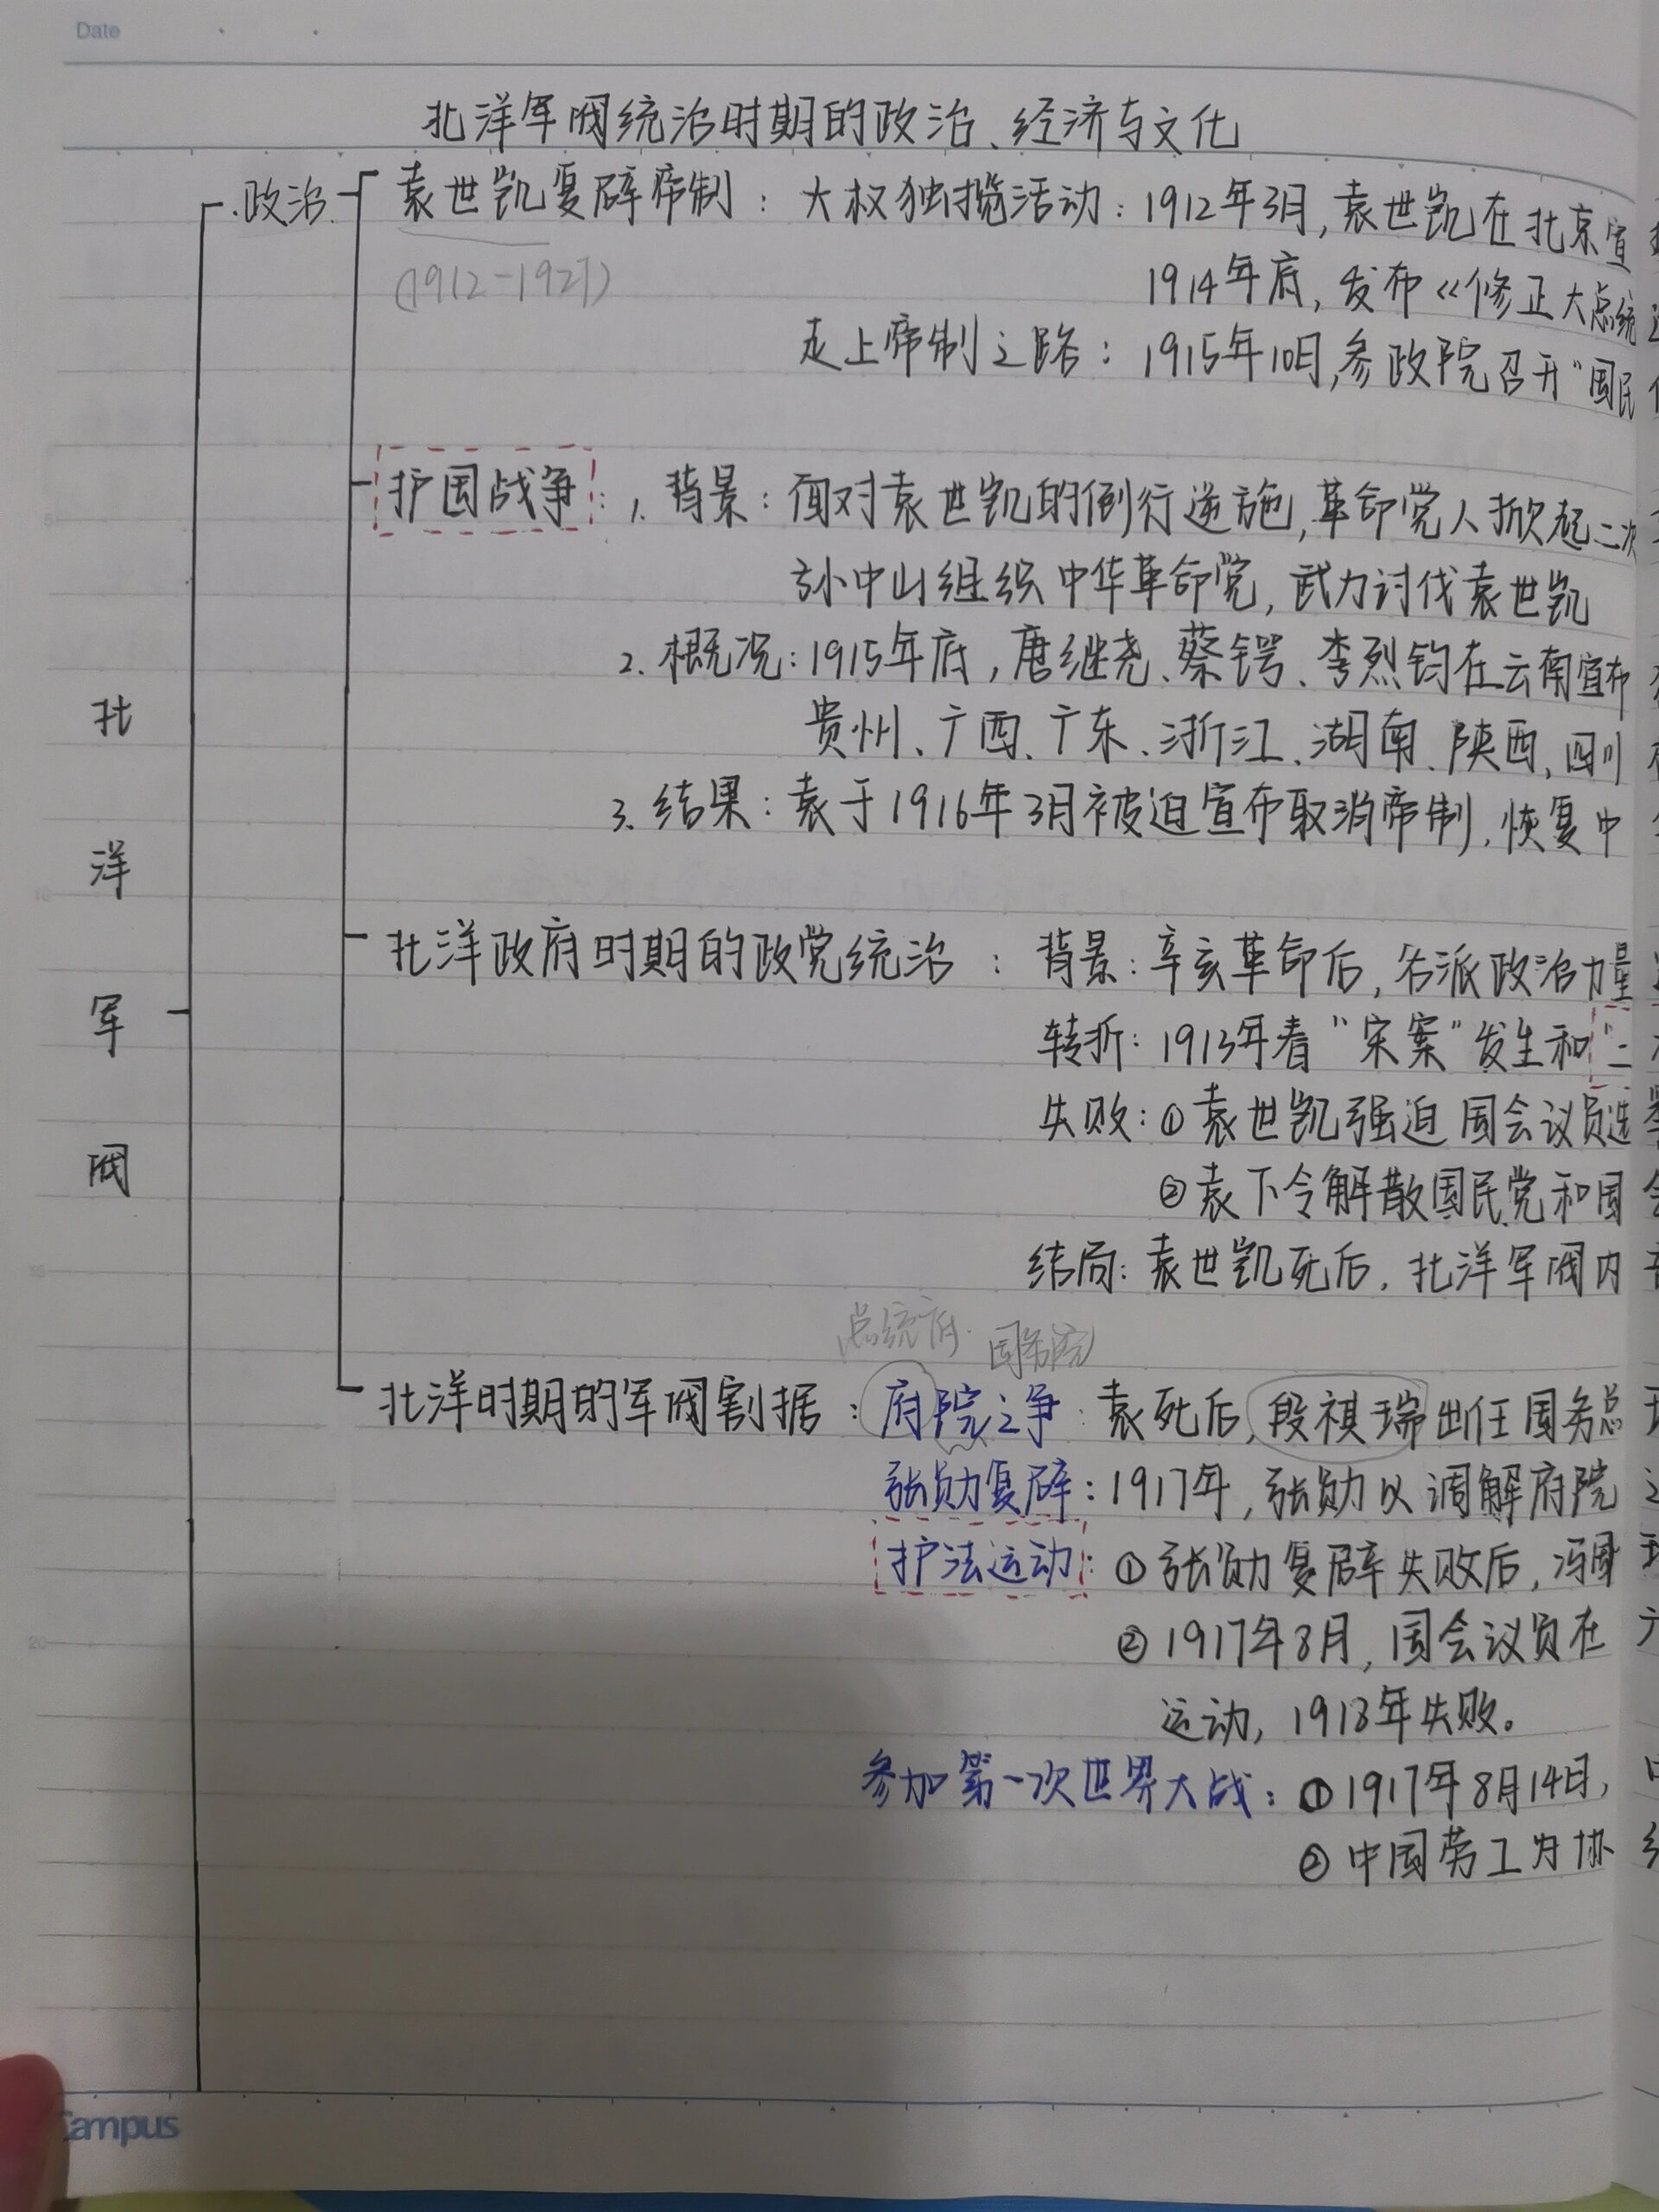 Date
北洋军阀统治时期的政治、经济与文化
政治 袁世凯复辟帝制：大权独揽活动：1912年3月，袁世凯在北京宣
(1912-1927)
1914年底，发布《修正大总统
走上帝制之路：1915年10月，参政院召开“国民
护国战争：1. 背景：面对袁世凯的倒行逆施，革命党人掀起二次
孙中山组织中华革命党，武力讨伐袁世凯
2. 概况：1915年底，唐继尧、蔡锷、李烈钧在云南宣布
贵州、广西、广东、浙江、湖南、陕西、四川
3. 结果：袁于1916年3月被迫宣布取消帝制，恢复中
北洋军阀
北洋政府时期的政党统治：背景：辛亥革命后，各派政治力量
转折：1913年春“宋案”发生和“二
失败：①袁世凯强迫国会议员选
②袁下令解散国民党和国
结局：袁世凯死后，北洋军阀内
总统府 国务院
北洋时期的军阀割据：府院之争：袁死后，段祺瑞出任国务总
张勋复辟：1917年，张勋以调解府院
护法运动：①张勋复辟失败后，冯国
②1917年8月，国会议员在
运动，1918年失败。
参加第一次世界大战：①1917年8月14日，
②中国劳工为协
5
10
15
20
Campus